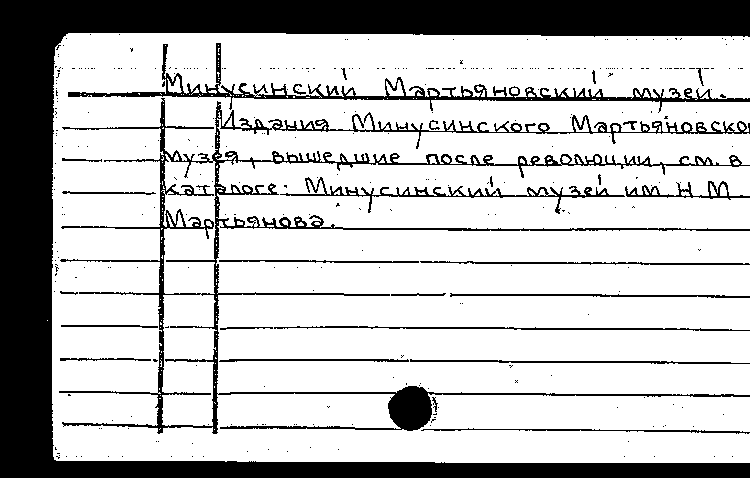 Минусинский Мартьяновский музей.
Издания Минусинского Мартьяновско
музея, вышедшие после революции, см. в
каталоге: Минусинский музей им Н М
Мартьянова.